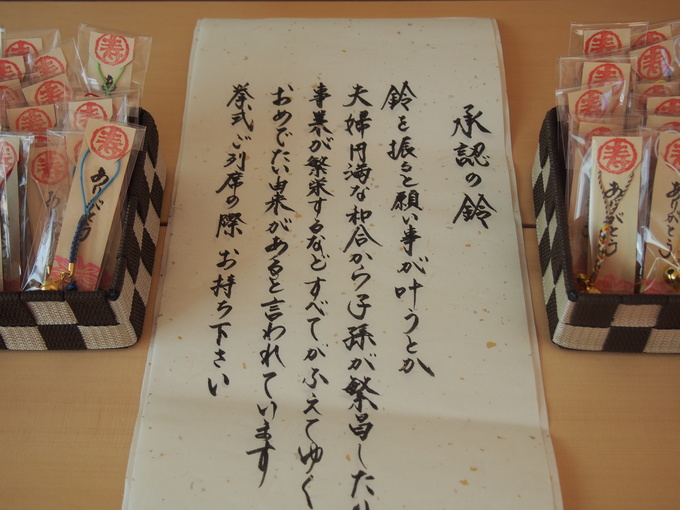 承認の鈴
鈴を振ると願い事が叶うとか
夫婦円満な和合から子孫が繁昌したり
事業が繁栄するなどすべてがふえてゆく
おめでたい由来があると言われています
挙式ご列席の際 お持ち下さい
寿
ありがとう
寿
ありがとう
寿
ありがとう